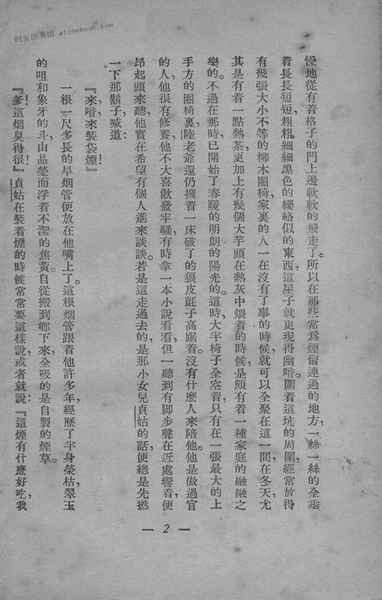 慢地從有着格子的門上邊歇歇的飛走了。所以在那些常爲煙氣連過的地方，一絲一絲的全罣
着長長短短，粗粗細細黑色的像絡似的東西，這屋子就更現得幽暗。圍着這坑的周圍，經常放得
有幾張大小不等的柳木圈椅，家裏的人一在沒有了事的時候，就可以全聚在這一間。在冬天，尤
其是有着一點熱茶，更加上有幾個大芋頭在熱灰中煨着的時候，是頗有着一種家庭的融融之
樂的。不過在那時，已開始了春暖的明朗的陽光的這時，大半椅子全空着，只有在一張最大的上
手方的圈椅裏，陸老爺還仍擁着一床破了的狼皮氈子高踞着。沒有什麼人來陪他，他是做過官
的人，他很有修養，他不大喜歡發牢騷，有時拿一本小說看看，但一聽到有脚步聲在近處響着，便
昂起頭來聽，他實在希望有個人進來談談。若是這走過去的，是那小女兒貞姑的話，便總是先撚
一下那鬍子喊道：
『來唦，來裝袋煙！』
一根一尺多長的旱烟管便放在他嘴上了。這根烟管跟着他許多年，經歷了半身榮枯，翠玉
的咀和象牙的斗，由晶瑩而浮着不潔的焦黃。自從搬到鄉下來，全吸的是自製的煙草。
『爹！這烟臭得很！』貞姑在裝着煙的時候常常要這樣說，或者就說：『這煙有什麼好吃，我
— 2 —